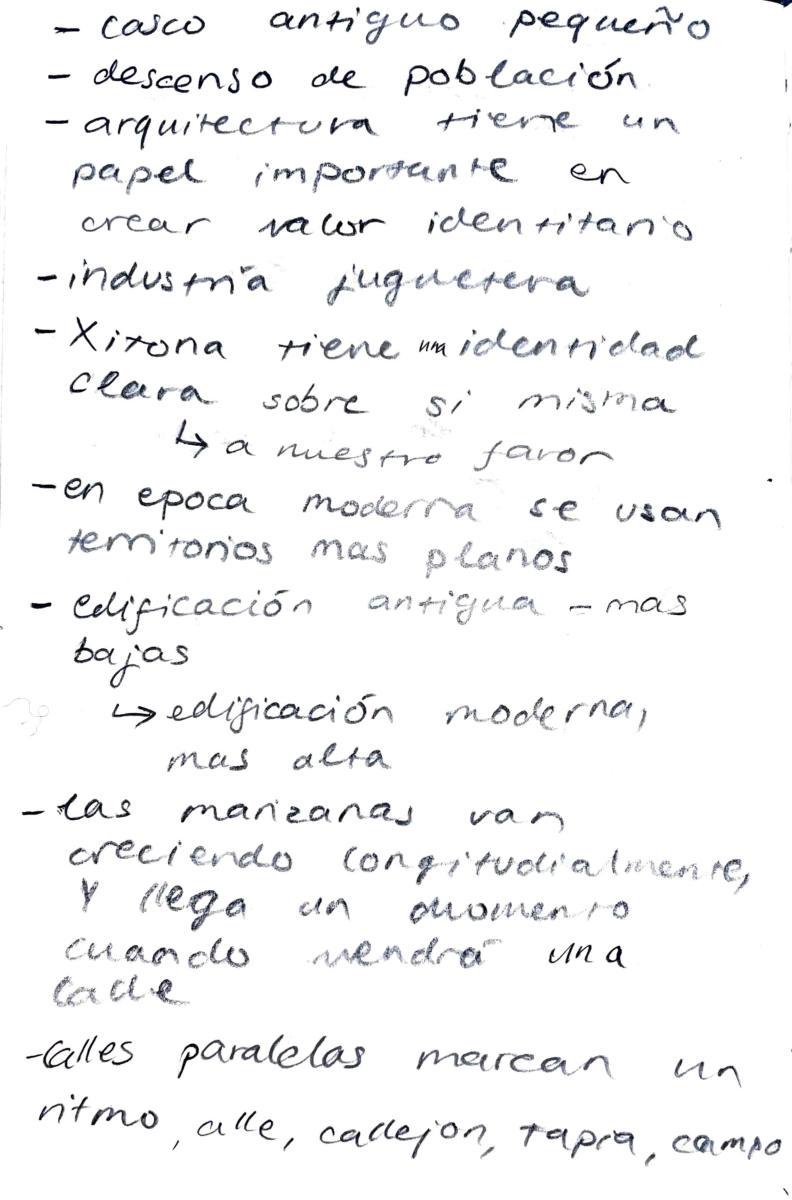 - casco antiguo pequeño
- descenso de población
- arquitectura tiene un
papel importante en
crear valor identitario
- industria juguetera
- Xixona tiene una identidad
clara sobre si misma
↳ a nuestro favor
- en epoca moderna se usan
territorios mas planos
- edificación antigua - mas
bajas
↳ edificación moderna,
mas alta
- las manzanas van
creciendo longitudialmente,
y llega un momento
cuando vendrá una
calle
- calles paralelas marcan un
ritmo, calle, callejon, tapia, campo